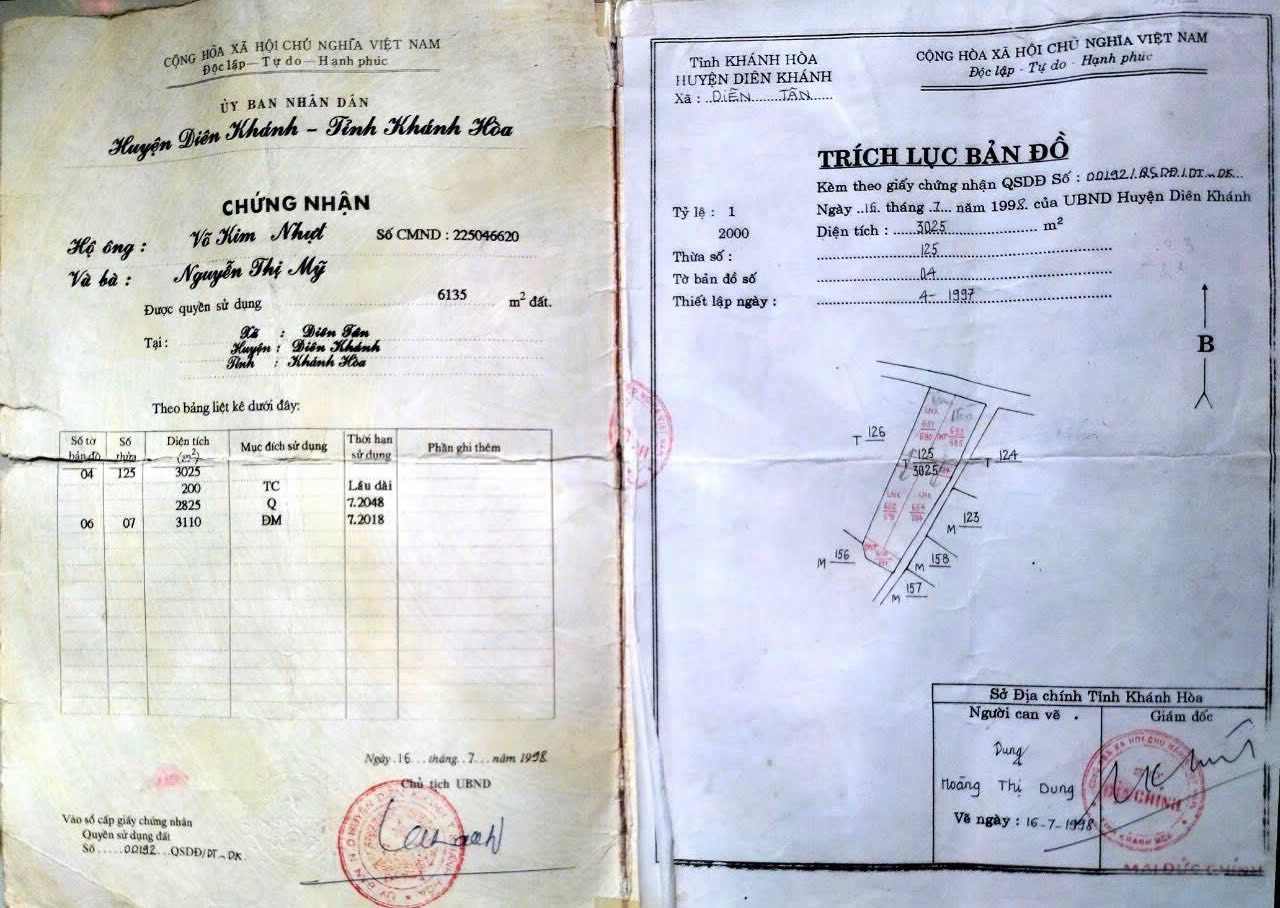 CỘNG HÒA XÃ HỘI CHỦ NGHĨA VIỆT NAM
Độc lập — Tự do — Hạnh phúc
ỦY BAN NHÂN DÂN
Huyện Diên Khánh – Tỉnh Khánh Hòa
CHỨNG NHẬN
Hộ ông : Võ Kim Nhựt Số CMND : 225046620
Và bà : Nguyễn Thị Mỹ
Được quyền sử dụng 6135 m² đất.
Tại : Xã : Diên Tân
Huyện : Diên Khánh
Tỉnh : Khánh Hòa
Theo bảng liệt kê dưới đây:
Số tờ bản đồ Số thửa Diện tích (m²) Mục đích sử dụng Thời hạn sử dụng Phần ghi thêm
04 125 3025
200 TC Lâu dài
2825 Q 7.2048
06 07 3110 ĐM 7.2018
Ngày 16 tháng 7 năm 1998
Chủ tịch UBND
Vào sổ cấp giấy chứng nhận
Quyền sử dụng đất
Số 00192 QSDĐ/DT-DK
Tỉnh KHÁNH HÒA
HUYỆN DIÊN KHÁNH
Xã : DIÊN TÂN
CỘNG HÒA XÃ HỘI CHỦ NGHĨA VIỆT NAM
Độc lập - Tự do - Hạnh phúc
TRÍCH LỤC BẢN ĐỒ
Kèm theo giấy chứng nhận QSDĐ Số : 00192/QSDĐ/DT-DK
Ngày 16 tháng 7 năm 1998 của UBND Huyện Diên Khánh
Tỷ lệ : 1
2000
Diện tích : 3025 m²
Thửa số : 125
Tờ bản đồ số 04
Thiết lập ngày : 4-1997
B
T 126
T 125
3025
T 124
M 123
M 156
M 158
M 157
Sở Địa chính Tỉnh Khánh Hòa
Người can vẽ .
Giám đốc
Dung
Hoàng Thị Dung
ĐỊA CHÍNH
Vẽ ngày : 16-7-1998
MAI ĐỨC CHÍNH